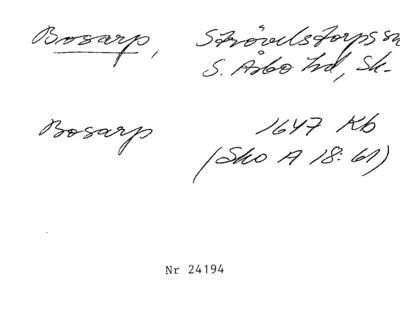 Bosarp, Strövelstorps sn
S. Åsbo hd, Sk.
Bosarp 1647 Kb
(Sko A 18: 61)
Nr 24194